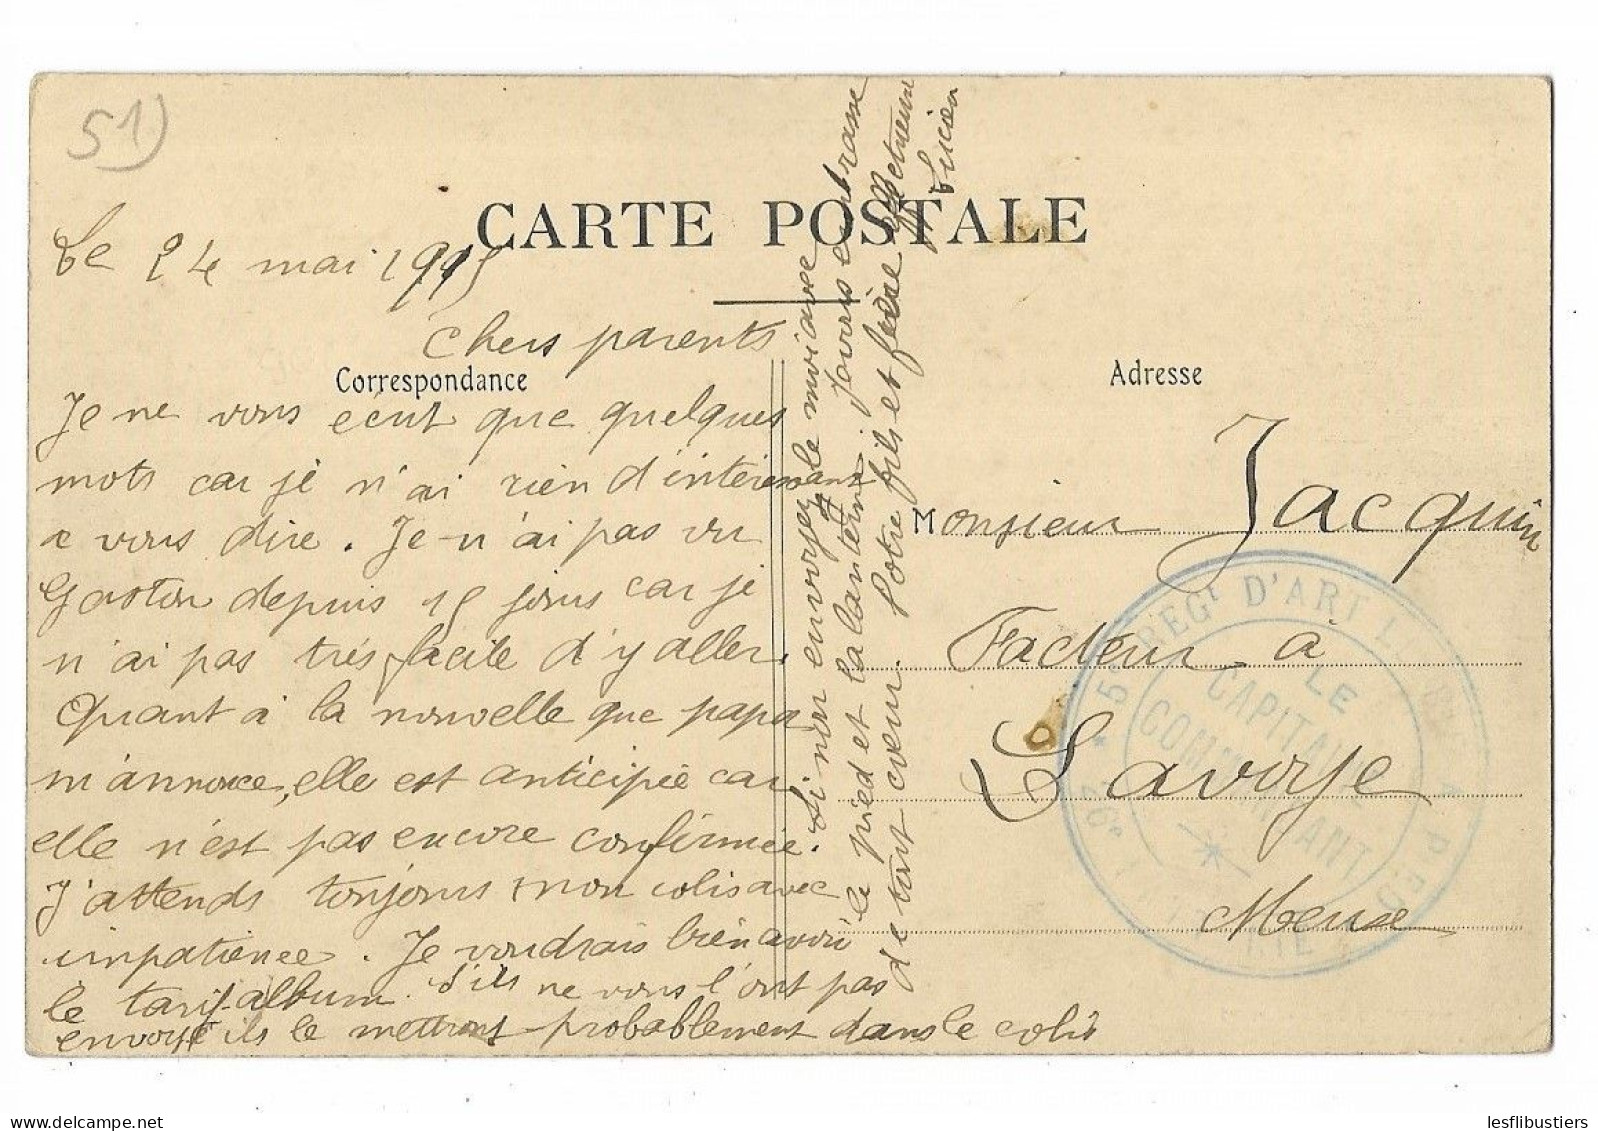 51)
CARTE POSTALE
Le 24 mai 1915
Chers parents
Correspondance
Je ne vous écrit que quelques
mots car je n'ai rien d'intéressant
a vous dire. Je n'ai pas vu
Gaston depuis 15 jours car je
n'ai pas très facile d'y aller.
Quant à la nouvelle que papa
m'annonce, elle est anticipée car
elle n'est pas encore confirmée.
J'attends toujours mon colis avec
impatience. Je voudrais bien avoir
le tarif-album. S'ils ne vous l'ont pas
envoyé ils le mettront probablement dans le colis
Si non envoyez le moi avec
le pied et la lanterne. J'ouvris embrasse
de tout cœur. Votre fils et frère
affectueux
Lucien
Adresse
Monsieur Jacquin
Facteur à
Lavoye
Meuse
5e REGt D'ART A PIED
LE
CAPITAINE
COMMANDANT
lesflibustiers